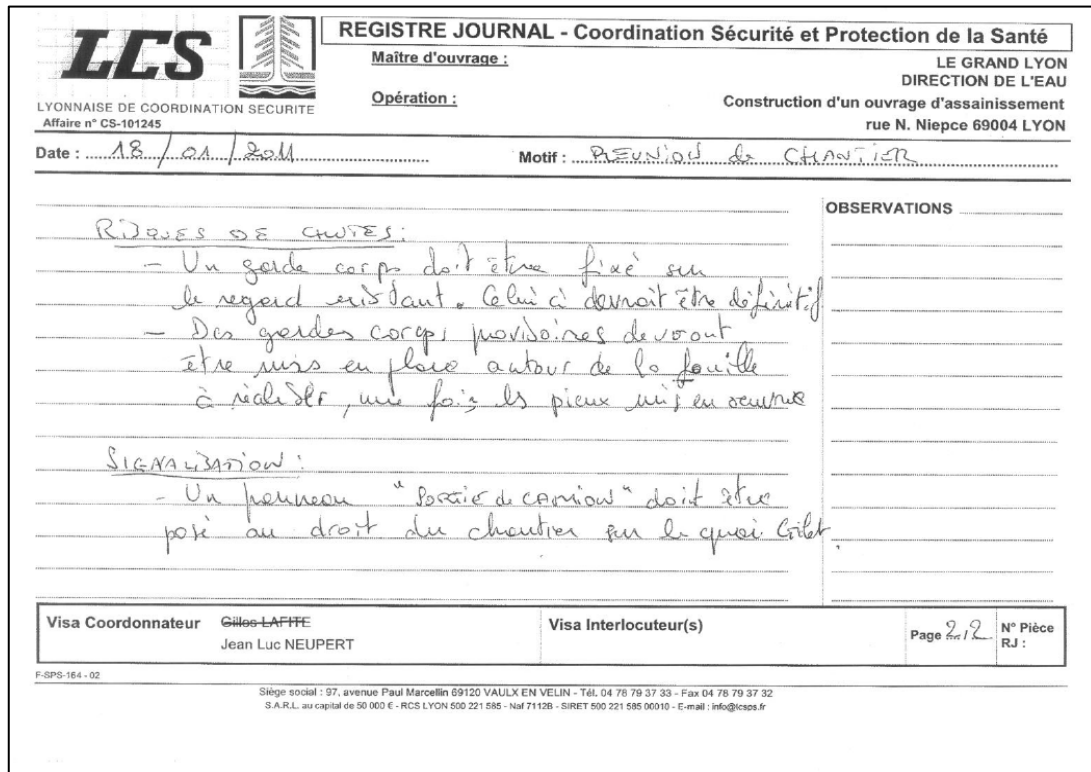 LCS
REGISTRE JOURNAL - Coordination Sécurité et Protection de la Santé
Maître d'ouvrage :
LE GRAND LYON
DIRECTION DE L'EAU
Opération :
Construction d'un ouvrage d'assainissement
rue N. Niepce 69004 LYON
LYONNAISE DE COORDINATION SECURITE
Affaire n° CS-101245
Date : 18 / 01 / 2011
Motif : REUNION de CHANTIER
OBSERVATIONS
RISQUES DE CHUTES :
- Un garde corps doit être fixé sur
le regard existant. Celui ci devrait être définitif
- Des gardes corps provisoires devront
être mis en place autour de la fouille
à réaliser, une fois les pieux mis en oeuvre
SIGNALISATION :
- Un panneau "SORTIE de CAMION" doit être
posé au droit du chantier sur le quai Gillet
Visa Coordonnateur
Gilles LAFITE
Jean Luc NEUPERT
Visa Interlocuteur(s)
Page 2/2
N° Pièce
RJ :
F-SPS-164 - 02
Siège social : 97, avenue Paul Marcellin 69120 VAULX EN VELIN - Tél. 04 78 79 37 33 - Fax 04 78 79 37 32
S.A.R.L. au capital de 50 000 € - RCS LYON 500 221 585 - Naf 7112B - SIRET 500 221 585 00010 - E-mail : info@lcsps.fr